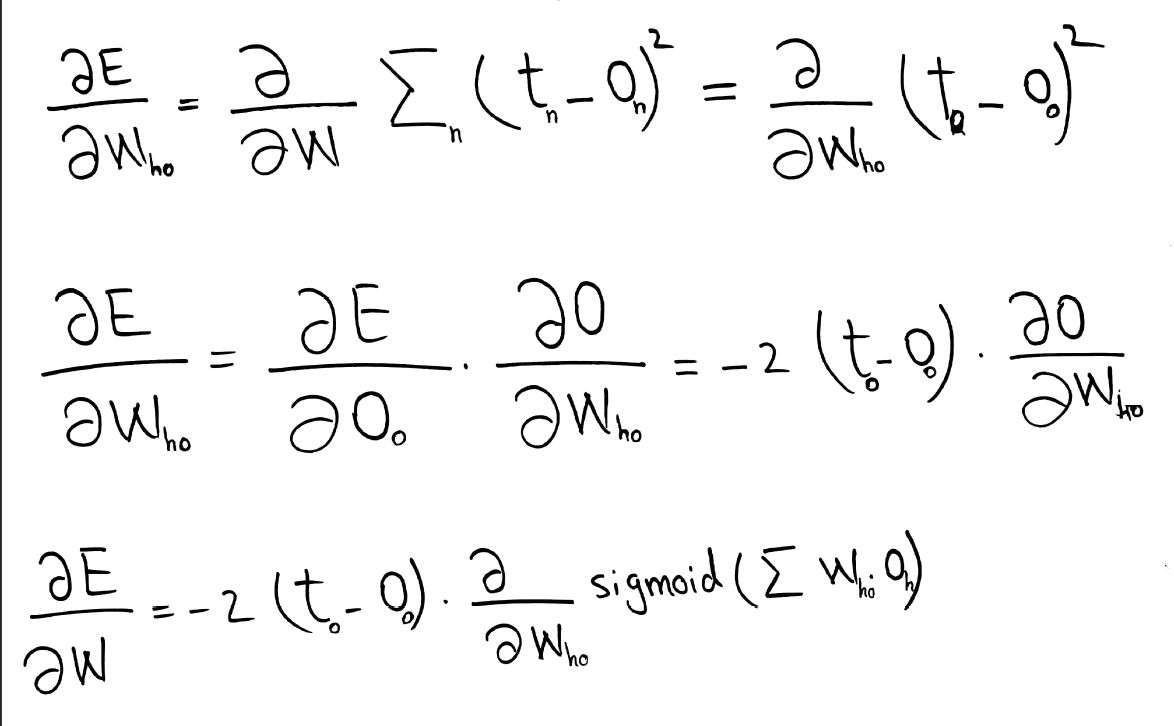 ∂E/∂W_ho = ∂/∂W Σ_n (t_n - O_n)² = ∂/∂W_ho (t_o - O_o)²
∂E/∂W_ho = ∂E/∂O_o · ∂O/∂W_ho = -2 (t_o - O_o) · ∂O/∂W_ho
∂E/∂W = -2 (t_o - O_o) · ∂/∂W_ho sigmoid (Σ W_ho O_h)